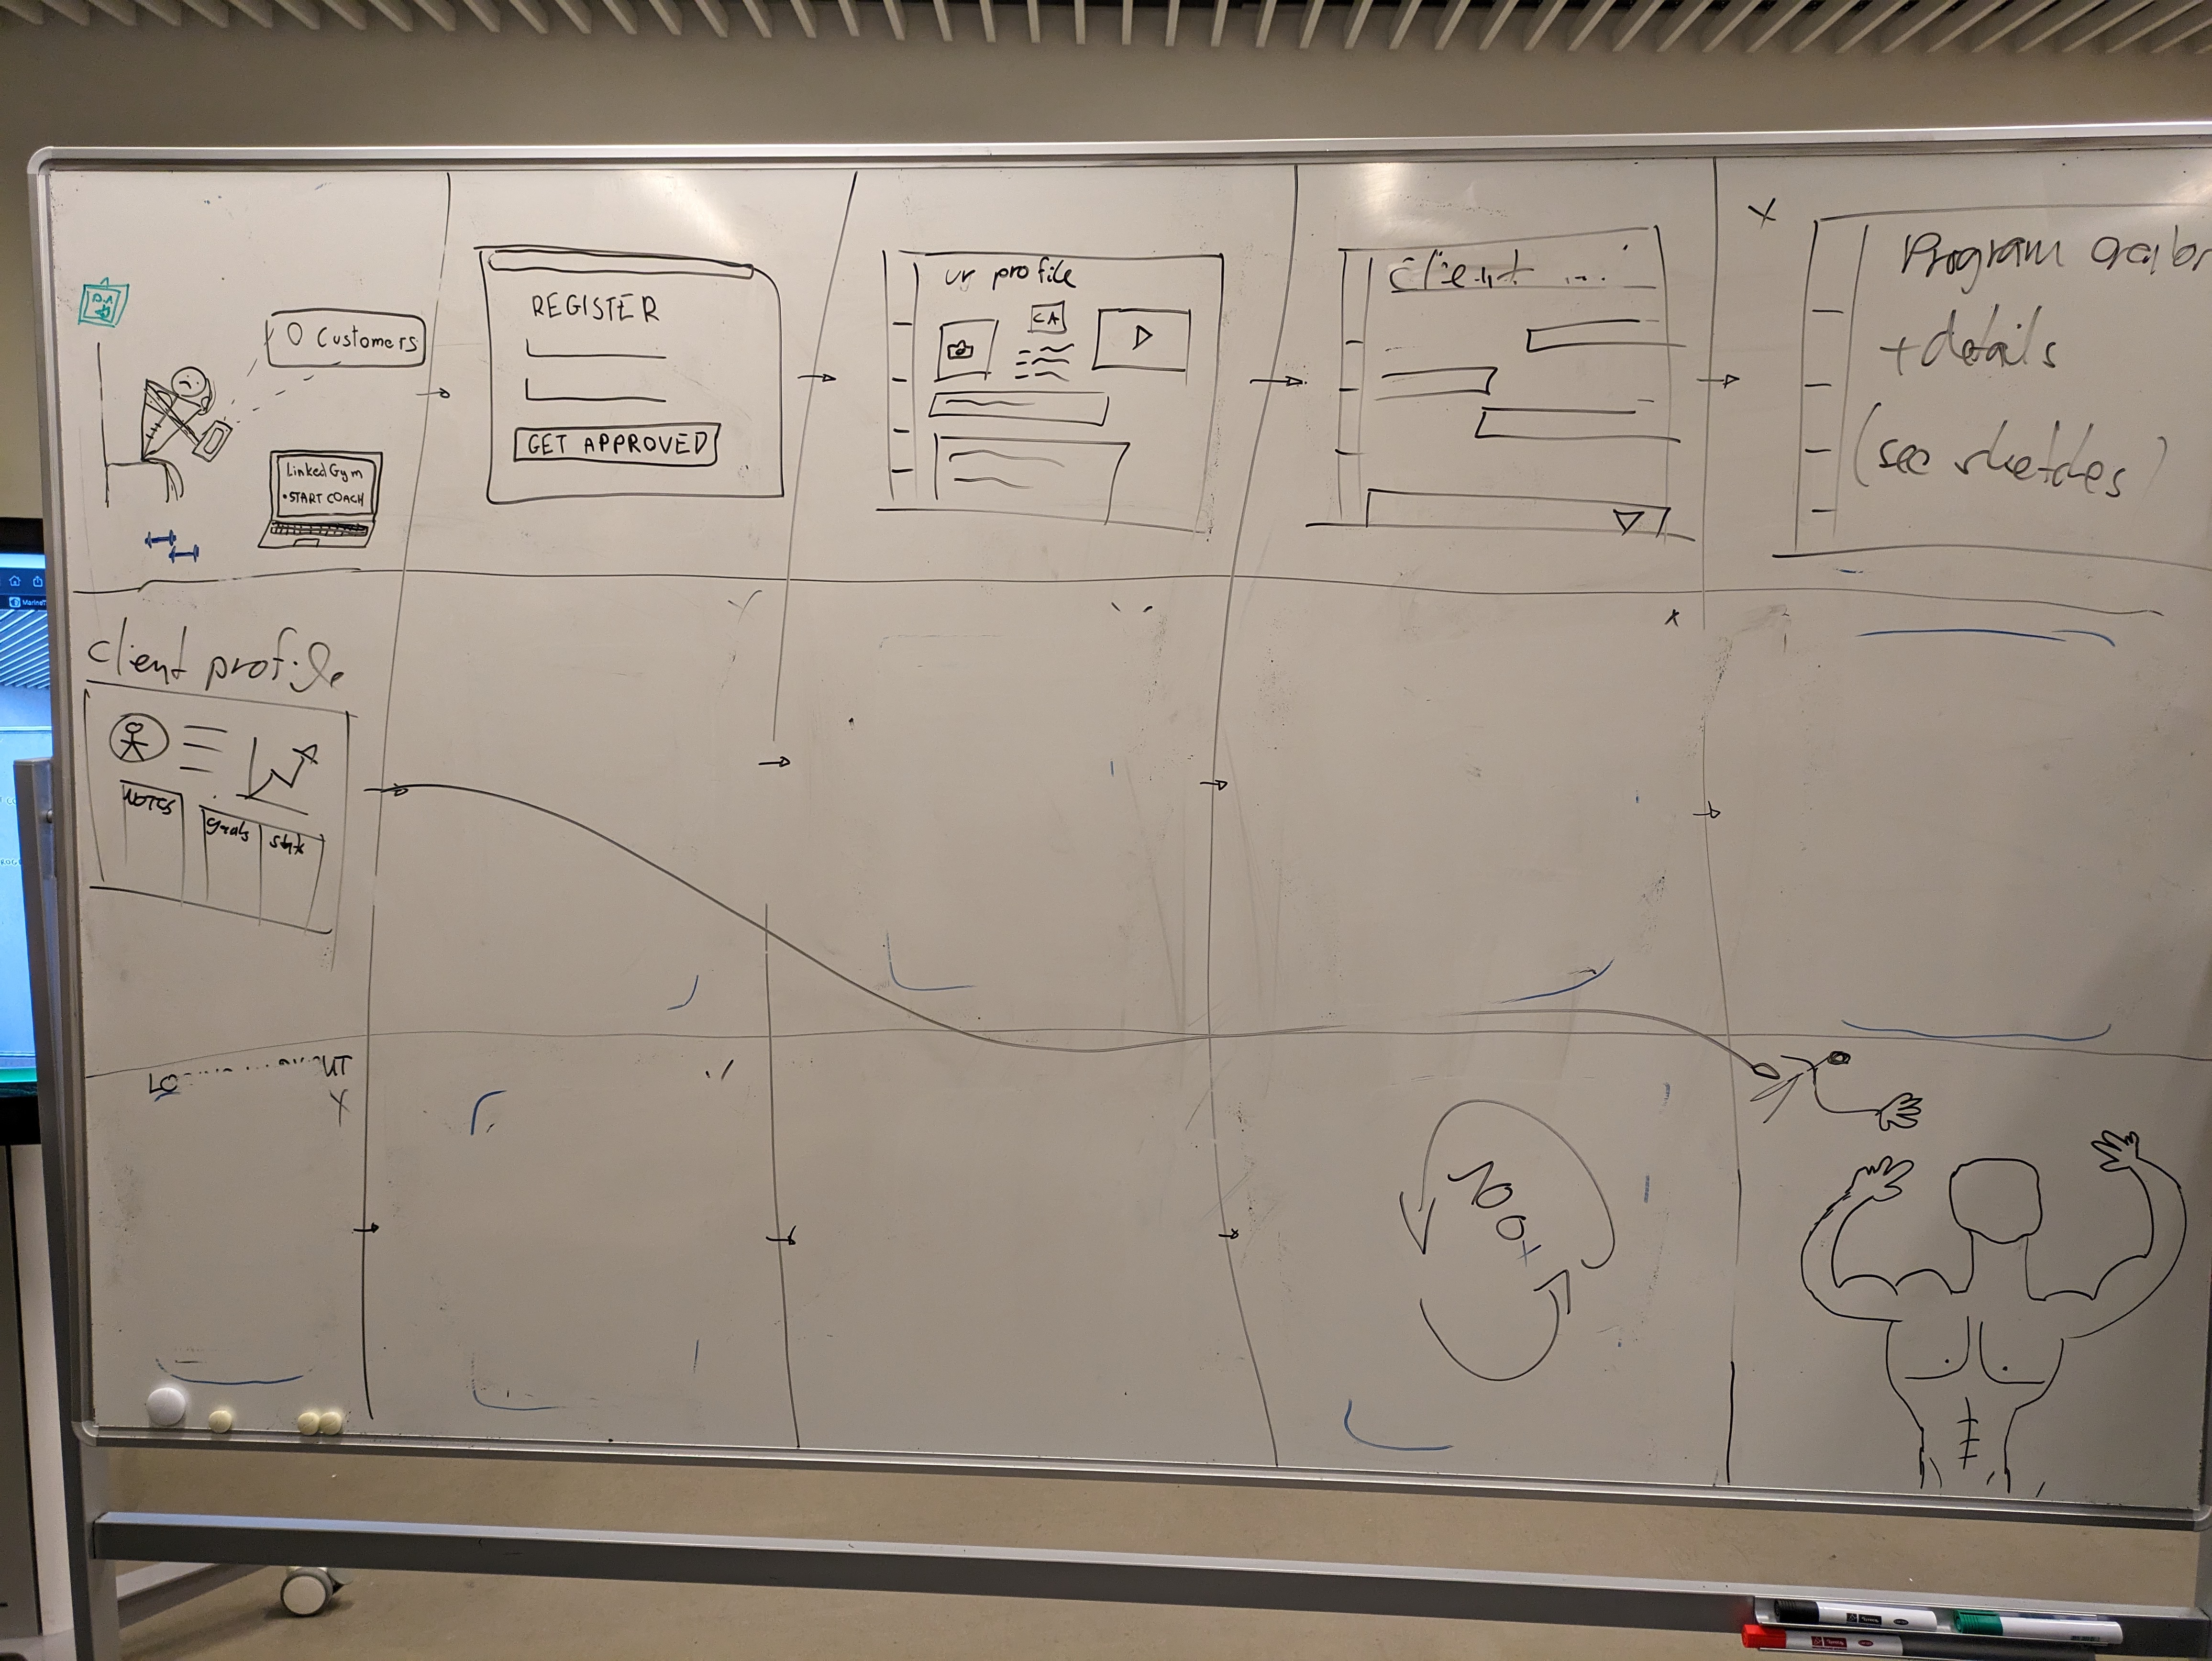 0 Customers
LinkedGym
• START COACH
REGISTER
GET APPROVED
ur profile
CA
client ...
Program
+ details
(see sketches)
client profile
NOTES
goals
100+